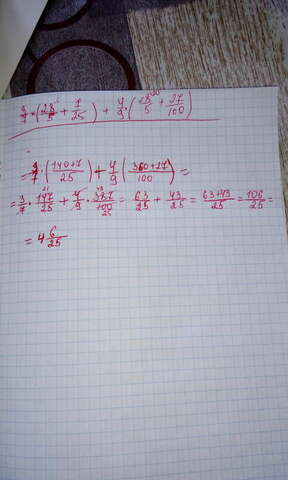 3/7 × (28/5 + 7/25) + 4/9 · (18/5 + 27/100)
= 3/7 · (140+7/25) + 4/9 (360+27/100) =
= 3/7 · 147/25 + 4/9 · 387/100 = 63/25 + 43/25 = 63+43/25 = 106/25 =
= 4 6/25